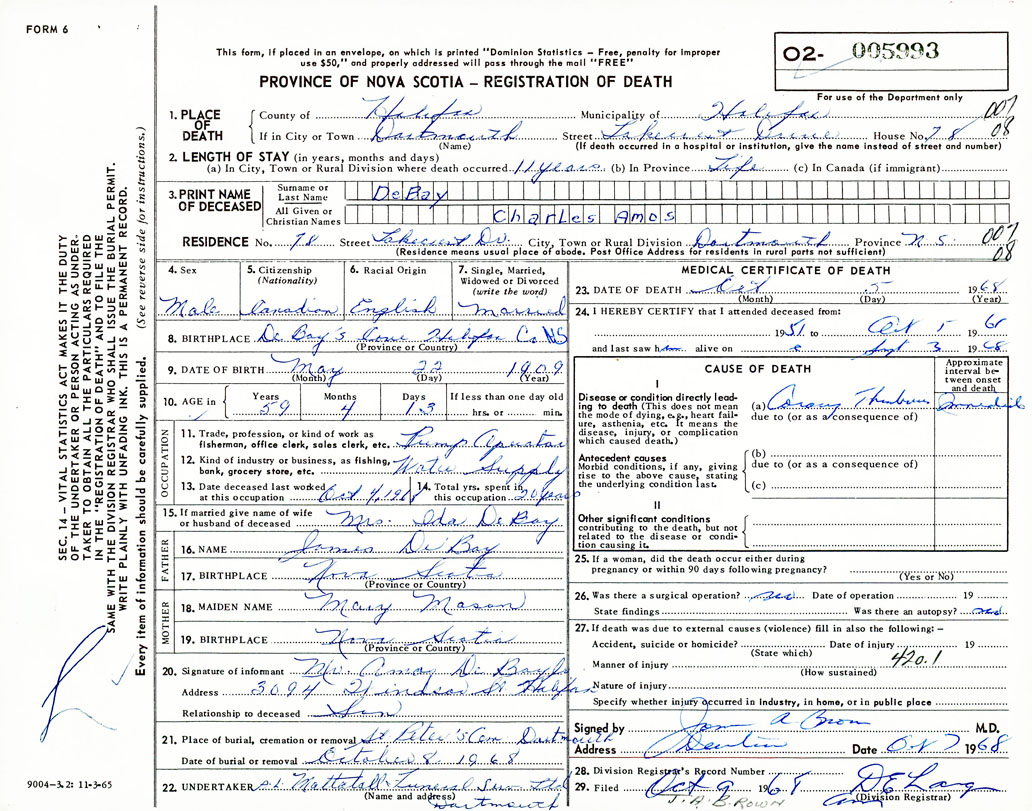 FORM 6
This form, if placed in an envelope, on which is printed "Dominion Statistics – Free, penalty for improper
use $50," and properly addressed will pass through the mail "FREE"
PROVINCE OF NOVA SCOTIA – REGISTRATION OF DEATH
02- 005993
For use of the Department only
007
08
1. PLACE OF DEATH
County of Halifax Municipality of Halifax
If in City or Town Dartmouth Street Lakecrest Drive House No. 78
(Name) (If death occurred in a hospital or institution, give the name instead of street and number)
2. LENGTH OF STAY (in years, months and days)
(a) In City, Town or Rural Division where death occurred 11 years (b) In Province Life (c) In Canada (if immigrant)
3. PRINT NAME OF DECEASED
Surname or Last Name DeBay
All Given or Christian Names Charles Amos
RESIDENCE No. 78 Street Lakecrest Dr. City, Town or Rural Division Dartmouth Province N.S.
(Residence means usual place of abode. Post Office Address for residents in rural parts not sufficient)
007
08
4. Sex
Male
5. Citizenship (Nationality)
Canadian
6. Racial Origin
English
7. Single, Married, Widowed or Divorced (write the word)
Married
8. BIRTHPLACE De Bay's Cove Halifax Co. NS
(Province or Country)
9. DATE OF BIRTH May 22 1909
(Month) (Day) (Year)
10. AGE in Years 59 Months 4 Days 13 If less than one day old
hrs. or min.
OCCUPATION
11. Trade, profession, or kind of work as fisherman, office clerk, sales clerk, etc. Pump Operator
12. Kind of industry or business, as fishing, bank, grocery store, etc. Water Supply
13. Date deceased last worked at this occupation Oct 4, 1968
14. Total yrs. spent in this occupation 20 years
15. If married give name of wife or husband of deceased Mrs. Ida De Bay
FATHER
16. NAME James De Bay
17. BIRTHPLACE Nova Scotia
(Province or Country)
MOTHER
18. MAIDEN NAME Mary Mason
19. BIRTHPLACE Nova Scotia
(Province or Country)
20. Signature of informant Mr. Amos De Bay
Address 3094 Windsor St Halifax
Relationship to deceased Son
21. Place of burial, cremation or removal St Peter's Cem. Dartmouth
Date of burial or removal October 8 1968
22. UNDERTAKER A.L. Mattatall Funeral Ser. Ltd
(Name and address) Dartmouth
MEDICAL CERTIFICATE OF DEATH
23. DATE OF DEATH Oct 5 1968
(Month) (Day) (Year)
24. I HEREBY CERTIFY that I attended deceased from:
1951 to Oct 5 19
and last saw him alive on Sept 3 1968
CAUSE OF DEATH
Approximate interval between onset and death
I
Disease or condition directly leading to death (This does not mean the mode of dying, e.g., heart failure, asthenia, etc. It means the disease, injury, or complication which caused death.)
(a) Coronary Thrombosis
due to (or as a consequence of)
Antecedent causes
Morbid conditions, if any, giving rise to the above cause, stating the underlying condition last.
(b)
due to (or as a consequence of)
(c)
II
Other significant conditions contributing to the death, but not related to the disease or condition causing it.
25. If a woman, did the death occur either during pregnancy or within 90 days following pregnancy?
(Yes or No)
26. Was there a surgical operation? no Date of operation 19
State findings Was there an autopsy? no
27. If death was due to external causes (violence) fill in also the following: –
Accident, suicide or homicide? Date of injury 19
(State which)
420.1
Manner of injury
(How sustained)
Nature of injury
Specify whether injury occurred in industry, in home, or in public place
Signed by A Brown M.D.
Address Date Oct 7 1968
28. Division Registrar's Record Number
29. Filed Oct 9 1968 D E Lang
(Division Registrar)
J. A. BROWN
SEC. 14 – VITAL STATISTICS ACT MAKES IT THE DUTY
OF THE UNDERTAKER OR PERSON ACTING AS UNDER-
TAKER TO OBTAIN ALL THE PARTICULARS REQUIRED
IN THE "REGISTRATION OF DEATH" AND TO FILE THE
SAME WITH THE DIVISION REGISTRAR WHO SHALL ISSUE THE BURIAL PERMIT.
WRITE PLAINLY WITH UNFADING INK. THIS IS A PERMANENT RECORD.
Every item of information should be carefully supplied. (See reverse side for instructions.)
9004-3.2: 11-3-65